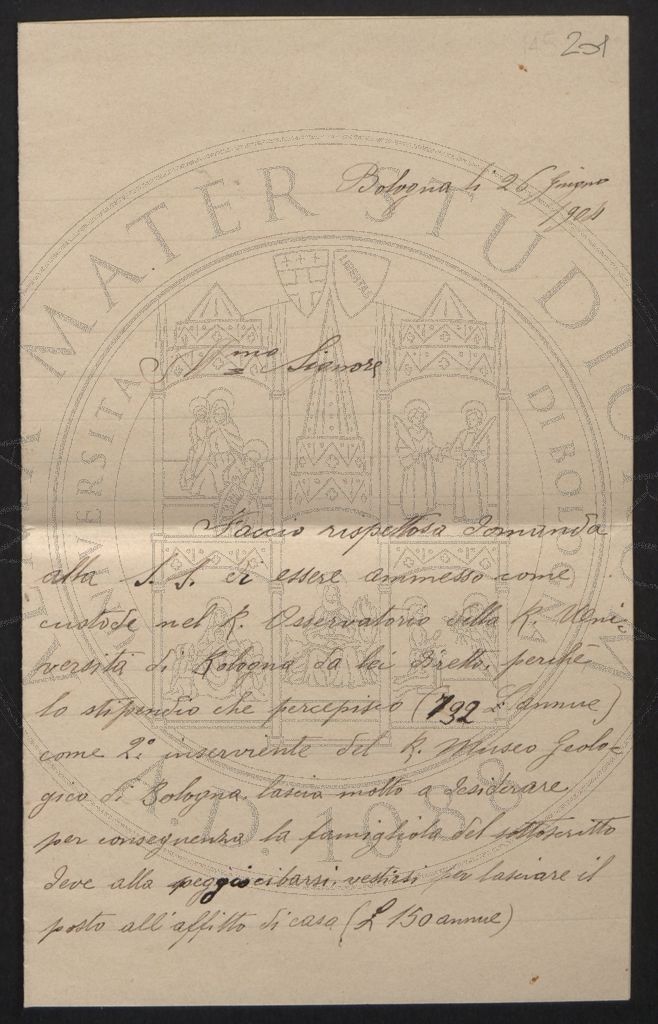 201
Bologna li 26 Giugno
1904
Ill.mo Signore
Faccio rispettosa domanda
alla S. S. di essere ammesso come
custode nel R. Osservatorio della R. Uni-
versità di Bologna da lei Diretto, perchè
lo stipendio che percepisco (792 £ annue)
come 2° inserviente del R. Museo Geolo-
gico di Bologna, lascia molto a desiderare,
per conseguenza la famigliola del sottoscritto
deve alla peggio cibarsi, vestirsi per lasciare il
posto all'affitto di casa (£ 150 annue)
ALMA MATER STUDIORUM
UNIVERSITA DI BOLOGNA
A.D. 1088
LIBERTAS